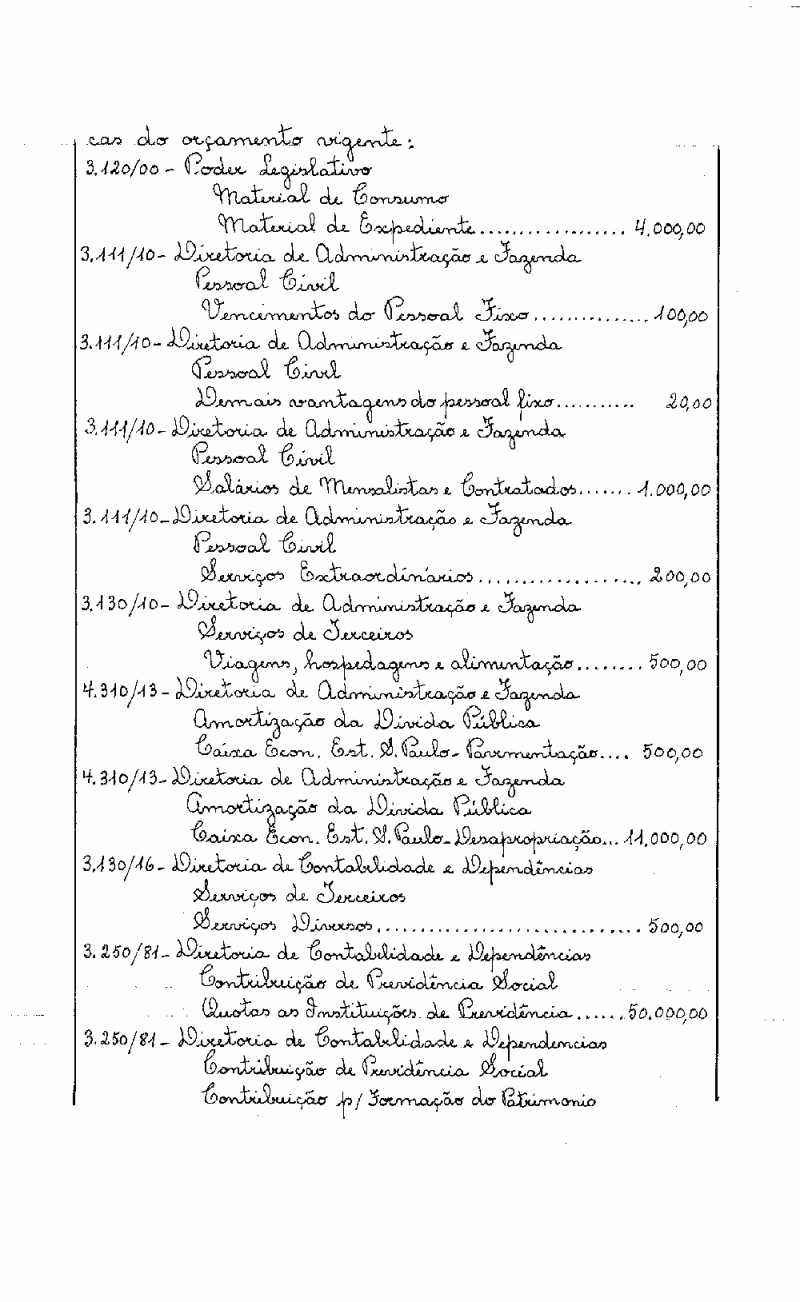 cas do orçamento vigente:
3.120/00 - Poder Legislativo
Material de Consumo
Material de Expediente.................. 4.000,00
3.111/10 - Diretoria de Administração e Fazenda
Pessoal Civil
Vencimentos do Pessoal Fixo.............. 100,00
3.111/10 - Diretoria de Administração e Fazenda
Pessoal Civil
Demais vantagens do pessoal fixo........... 20,00
3.111/10 - Diretoria de Administração e Fazenda
Pessoal Civil
Salários de Mensalistas e Contratados....... 1.000,00
3.111/10 - Diretoria de Administração e Fazenda
Pessoal Civil
Serviços Extraordinários................... 200,00
3.130/10 - Diretoria de Administração e Fazenda
Serviços de Terceiros
Viagens, hospedagens e alimentação........ 500,00
4.310/13 - Diretoria de Administração e Fazenda
Amortização da Dívida Pública
Caixa Econ. Est. S. Paulo - Pavimentação.... 500,00
4.310/13 - Diretoria de Administração e Fazenda
Amortização da Dívida Pública
Caixa Econ. Est. S. Paulo - Desapropriação... 11.000,00
3.130/16 - Diretoria de Contabilidade e Dependências
Serviços de Terceiros
Serviços Diversos............................. 500,00
3.250/81 - Diretoria de Contabilidade e Dependências
Contribuição de Previdência Social
Quotas as Instituições de Previdência...... 50.000,00
3.250/81 - Diretoria de Contabilidade e Dependencias
Contribuição de Previdência Social
Contribuição p/ Formação do Patrimonio